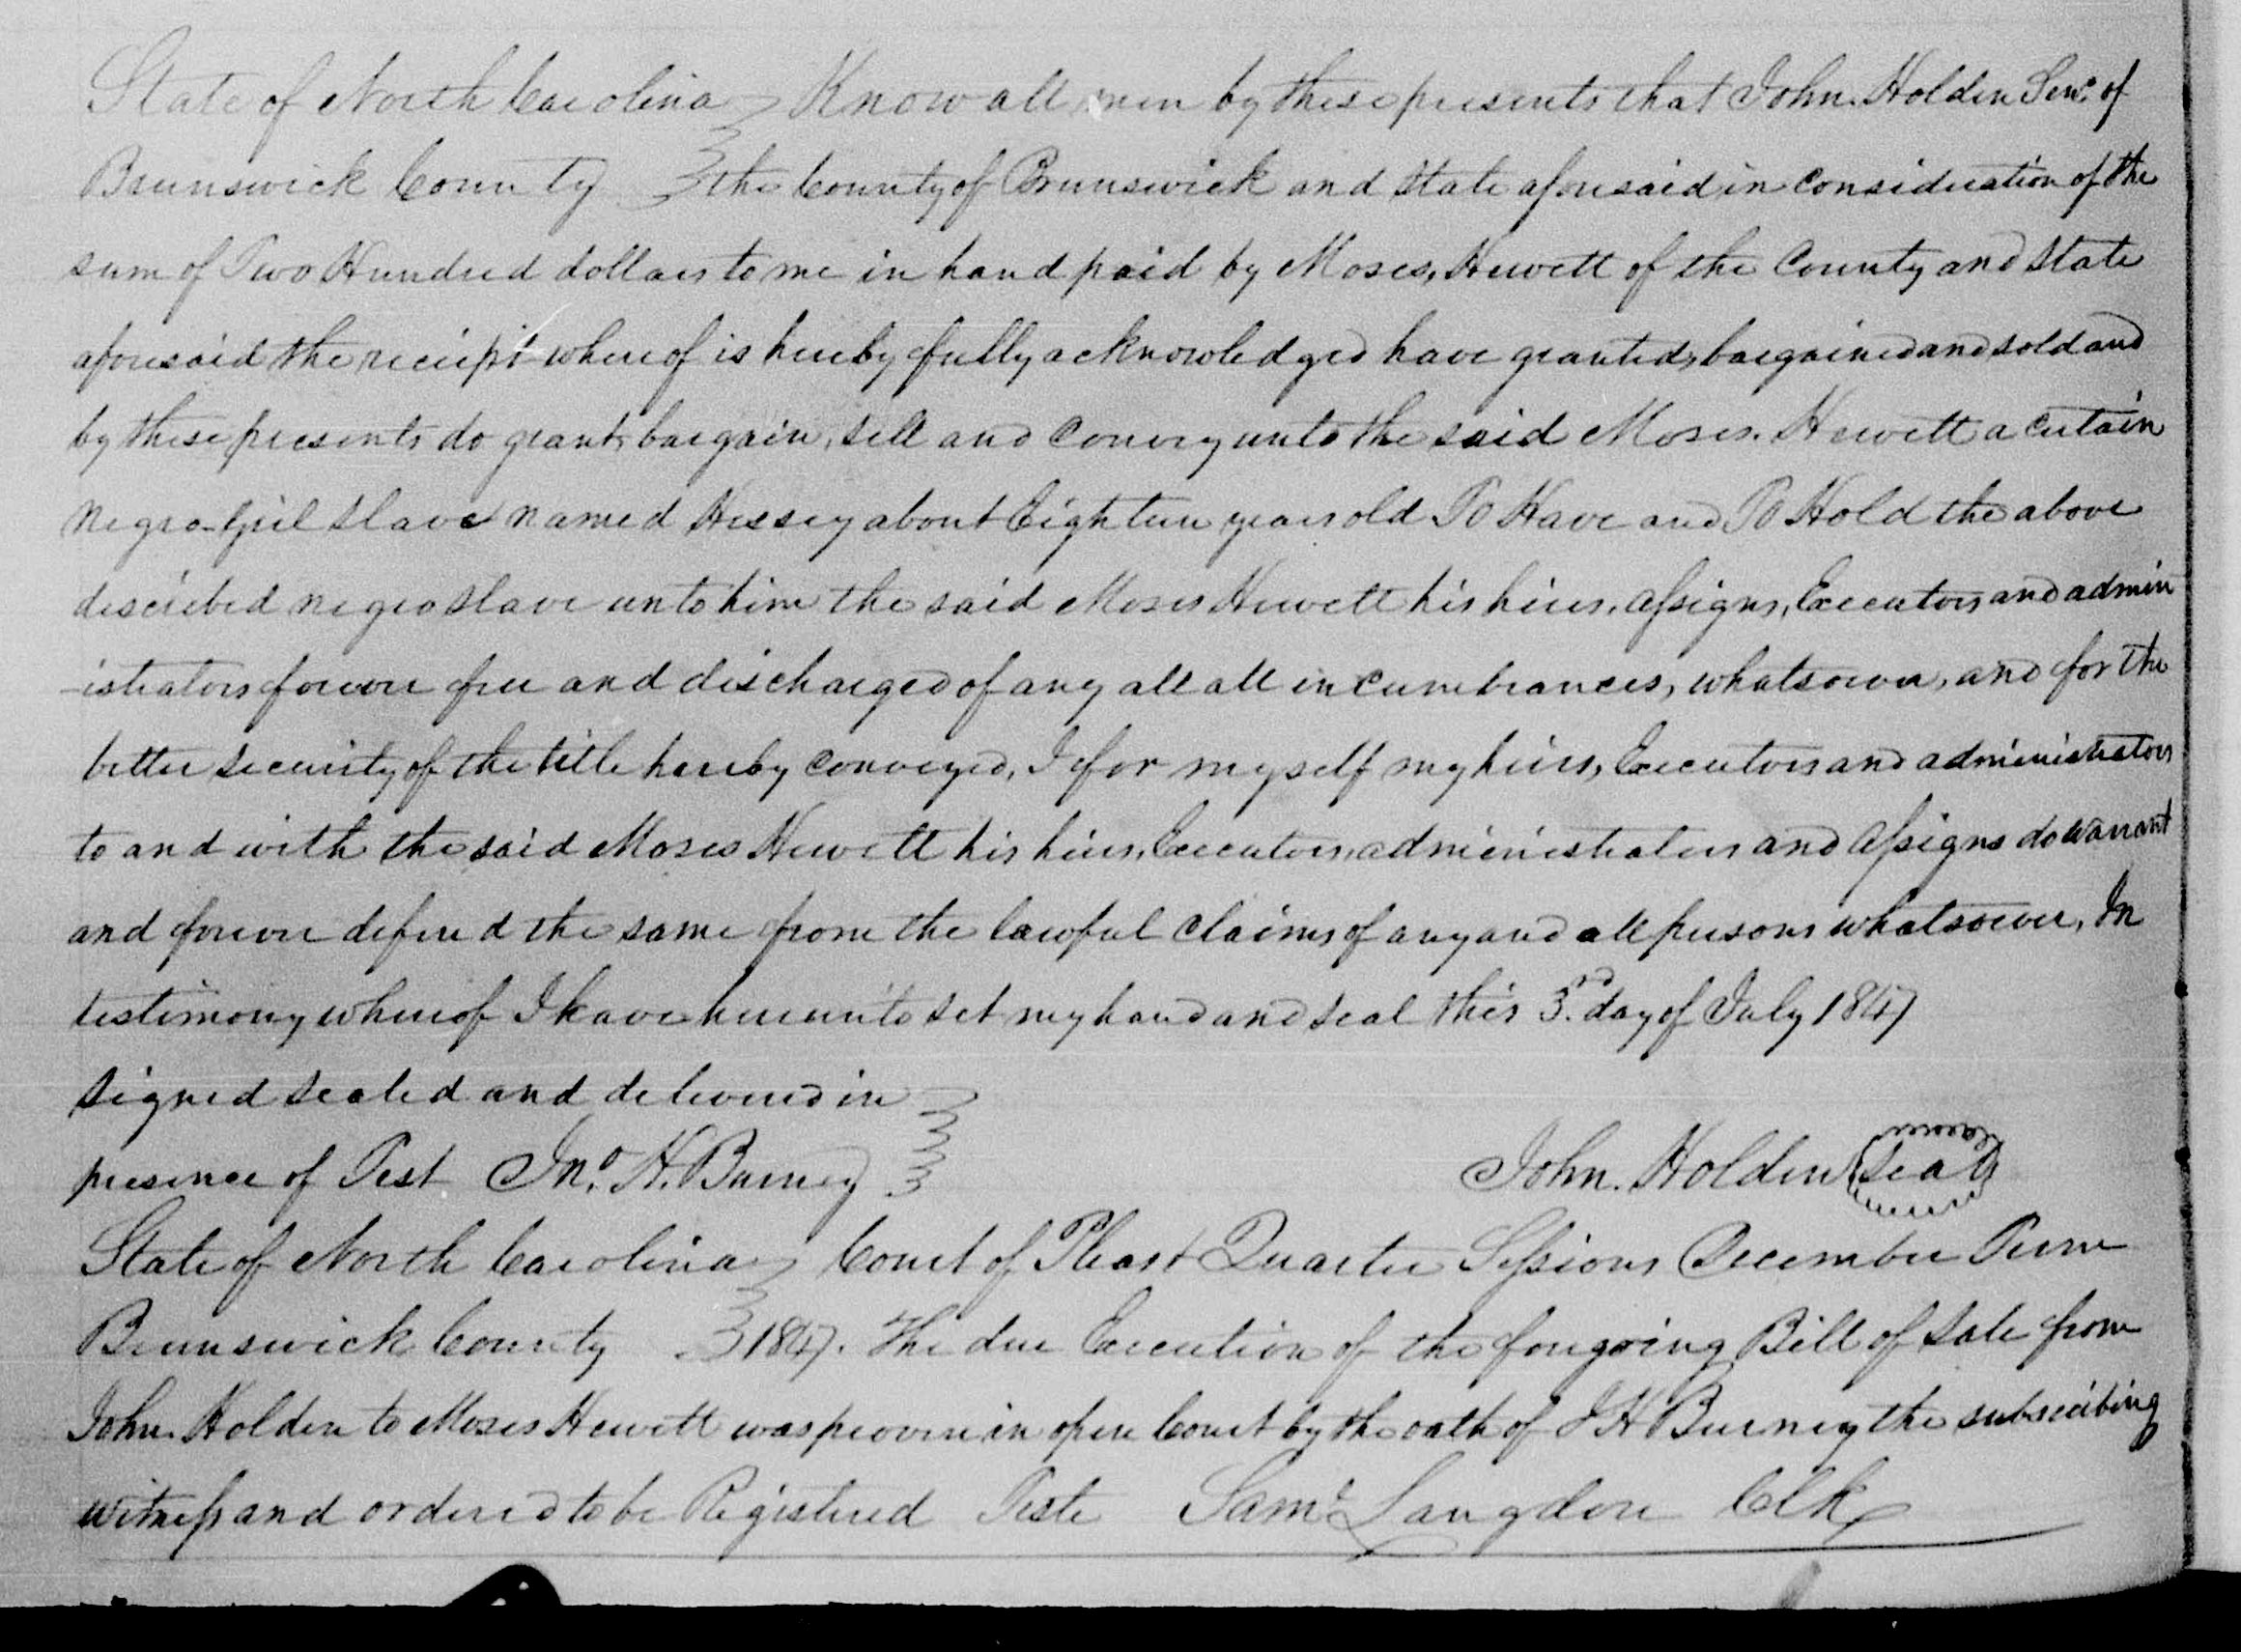 State of North Carolina } Know all men by these presents that John. Holden Senr. of
Brunswick County } the County of Brunswick and State aforesaid in consideration of the
sum of Two Hundred dollars to me in hand paid by Moses, Hewett of the County and State
aforesaid the reciept whereof is hereby fully acknowledged have granted, bargained and sold and
by these presents do grant, bargain, sell and convey unto the said Moses. Hewett a certain
negro-girl slave named Hessey about Eighteen years old To Have and To Hold the above
described negro slave unto him the said Moses Hewett his heirs, assigns, Executors and admin
-istrators forever free and discharged of any all all incumbrances, whatsoever, and for the
better security of the title hereby conveyed, I for myself my heirs, Executors and administrators
to and with the said Moses Hewett his heirs, Executors, administrators and assigns do warrant
and forever defend the same from the lawful claims of any and all persons whatsoever, In
testimony whereof I have hereunto set my hand and seal this 3rd. day of July 1847
Signed sealed and delivered in }
presence of Test Jno. H. Burney } John. Holden (Seal)
State of North Carolina } Court of Pleas & Quarter Sessions December Term
Brunswick County } 1847. The due Execution of the foregoing Bill of Sale from
John. Holden to Moses Hewett was proven in open Court by the oath of J H Burney the subscribing
witness and ordered to be Registered Teste Saml. Langdon Clk